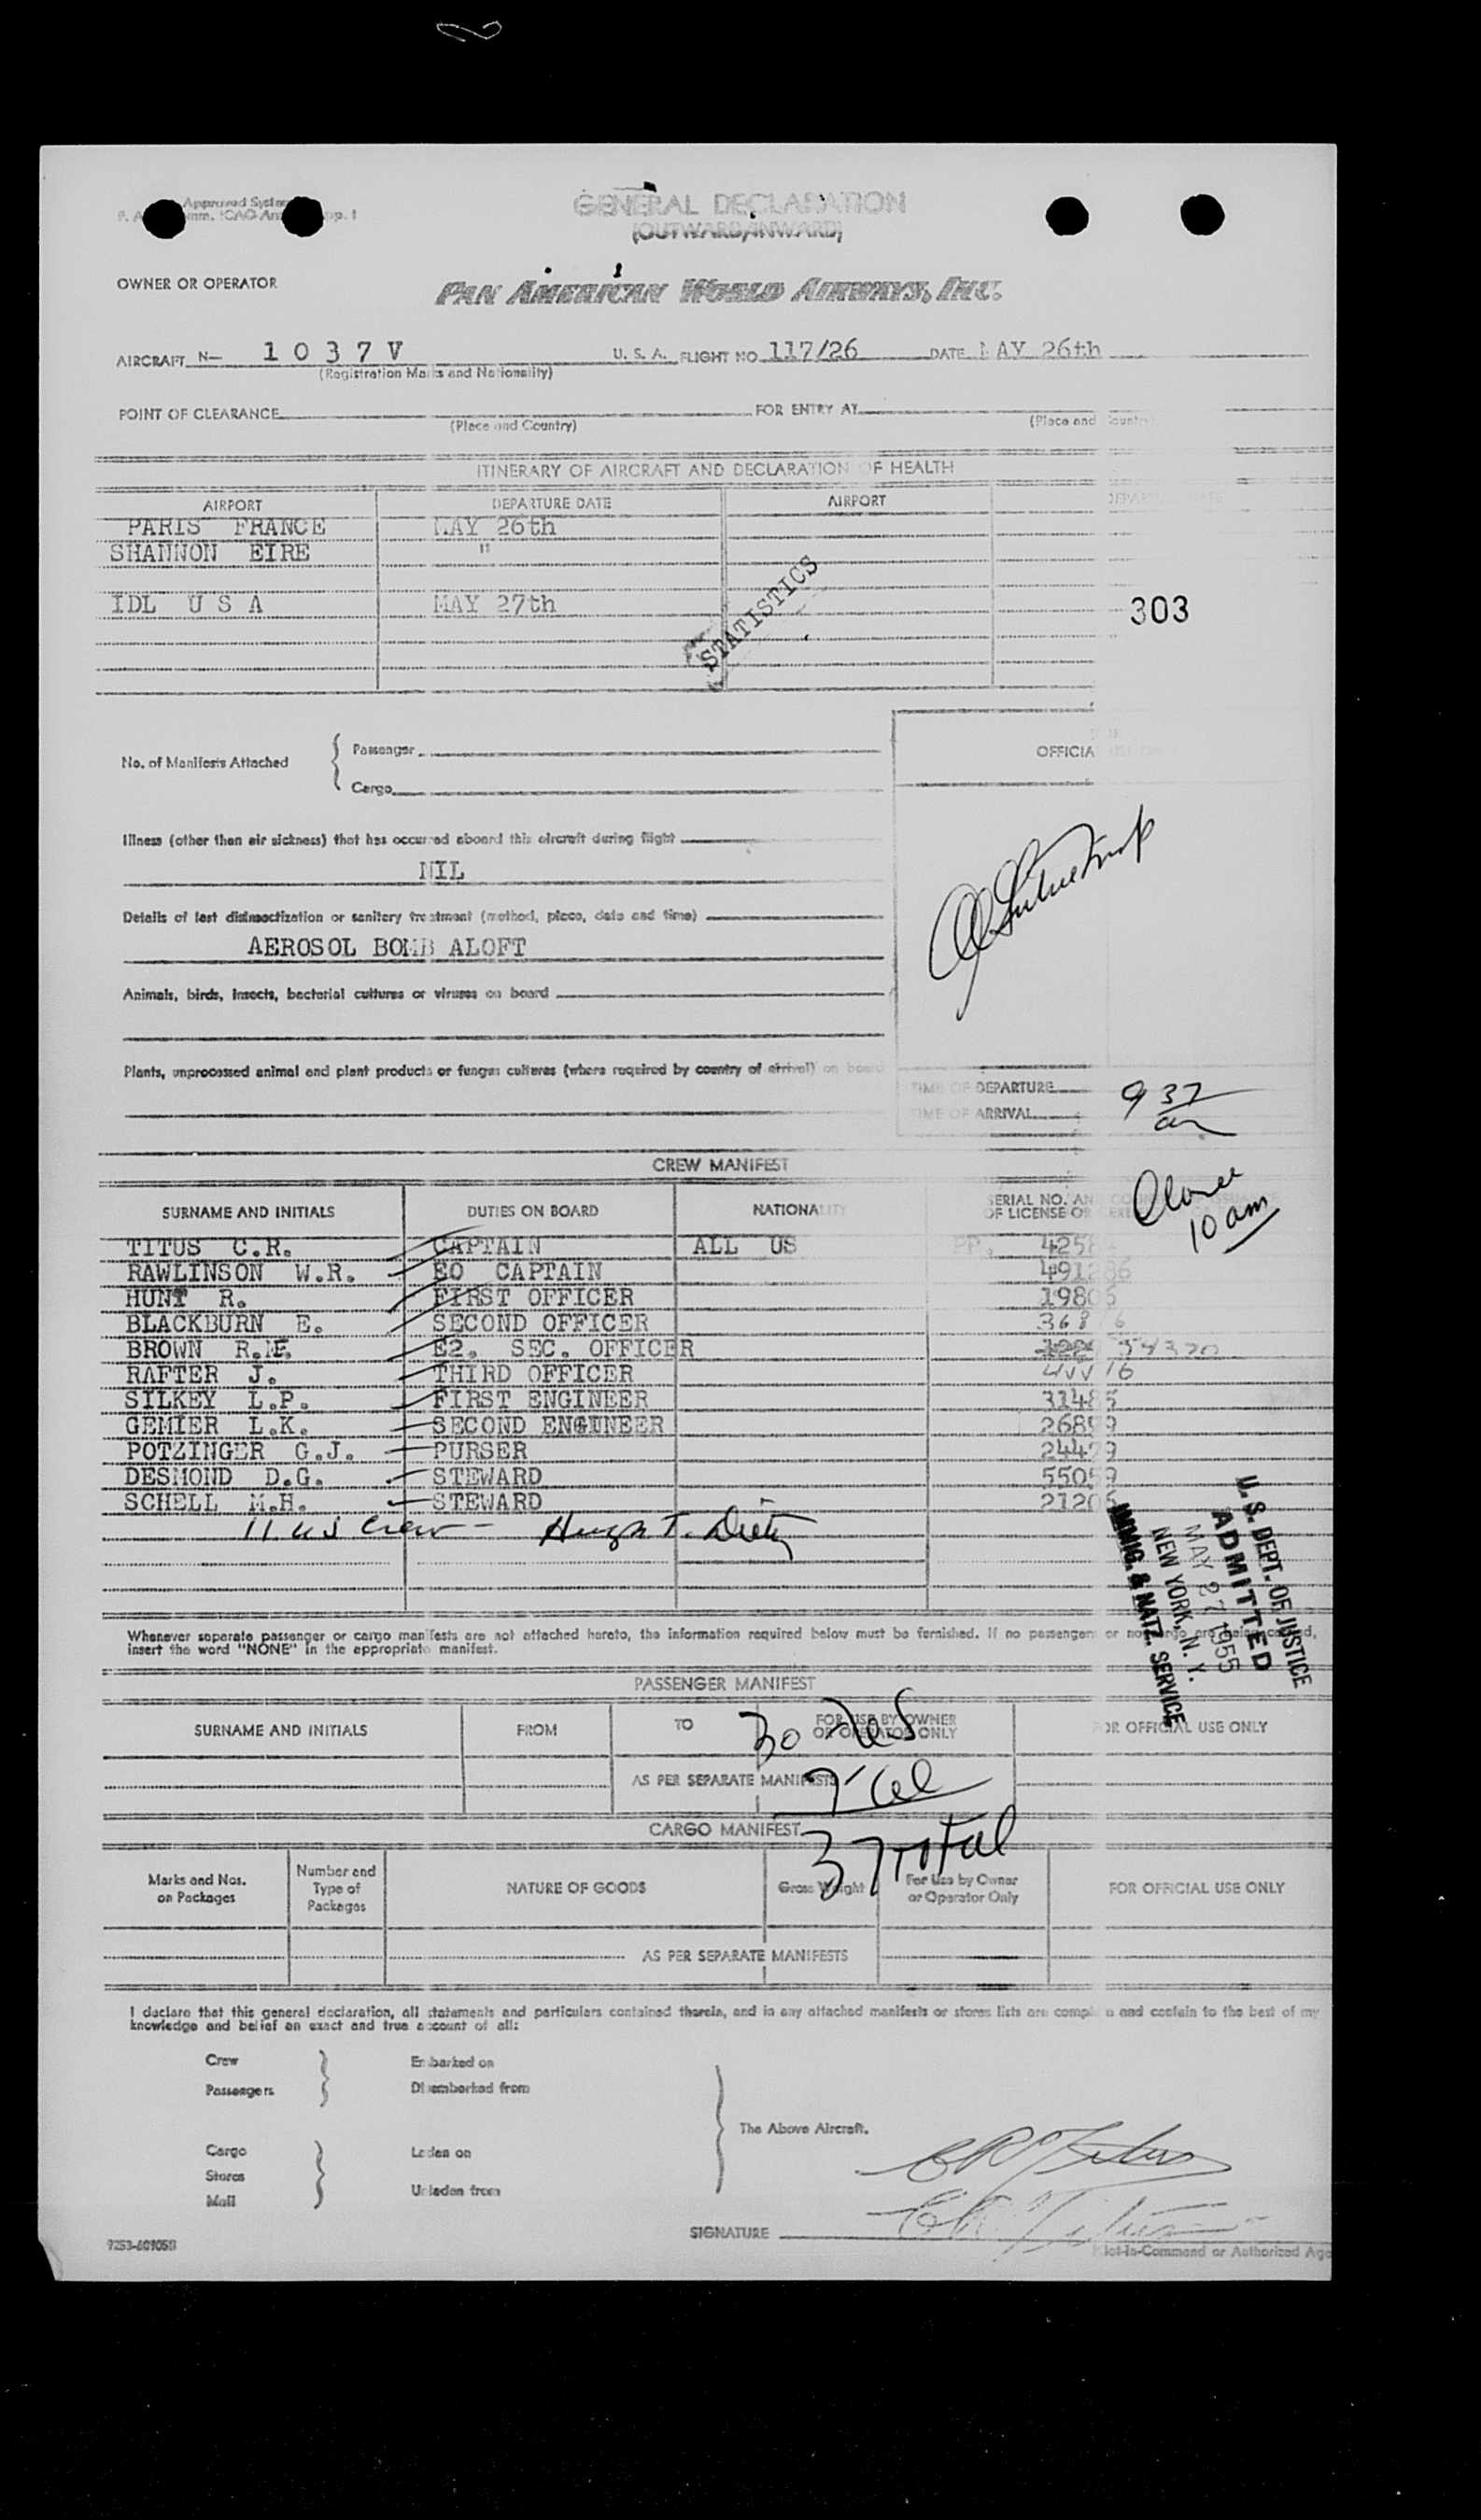 Approved System
GENERAL DECLARATION
(OUTWARD/INWARD)
OWNER OR OPERATOR
PAN AMERICAN WORLD AIRWAYS, INC.
AIRCRAFT N— 1 0 3 7 V U. S. A. FLIGHT NO. 117/26 DATE MAY 26th
(Registration Marks and Nationality)
POINT OF CLEARANCE FOR ENTRY AT
(Place and Country) (Place and Country)
ITINERARY OF AIRCRAFT AND DECLARATION OF HEALTH
AIRPORT DEPARTURE DATE AIRPORT DEPARTURE DATE
PARIS FRANCE MAY 26th
SHANNON EIRE "
IDL U S A MAY 27th
STATISTICS
303
No. of Manifests Attached
Passenger
Cargo
OFFICIAL
Illness (other than air sickness) that has occurred aboard this aircraft during flight
NIL
Details of last disinsectization or sanitary treatment (method, place, date and time)
AEROSOL BOMB ALOFT
Animals, birds, insects, bacterial cultures or viruses on board
Plants, unprocessed animal and plant products or fungus cultures (where required by country of arrival) on board
TIME OF DEPARTURE
TIME OF ARRIVAL
9 37
am
10 am
CREW MANIFEST
SURNAME AND INITIALS DUTIES ON BOARD NATIONALITY SERIAL NO. AN
OF LICENSE OR
TITUS C.R. CAPTAIN ALL US PP. 
RAWLINSON W.R. EO CAPTAIN
HUNT R. FIRST OFFICER
BLACKBURN E. SECOND OFFICER
BROWN E2. SEC. OFFICER 54320
RAFTER J. THIRD OFFICER
SILKEY L.P. FIRST ENGINEER 31485
GEMIER L.K. SECOND ENGINEER 26899
POTZINGER G.J. PURSER 24429
DESMOND D.G. STEWARD 55059
SCHELL M.H. STEWARD
11 US Crew - Hugh T.
U. S. DEPT. OF JUSTICE
ADMITTED
MAY 27 1955
NEW YORK, N. Y.
IMMIG. & NATZ. SERVICE
Whenever separate passenger or cargo manifests are not attached hereto, the information required below must be furnished. If no passengers or no cargo are being carried,
insert the word "NONE" in the appropriate manifest.
PASSENGER MANIFEST
SURNAME AND INITIALS FROM TO FOR USE BY OWNER
OR OPERATOR ONLY FOR OFFICIAL USE ONLY
30 US
AS PER SEPARATE MANIFESTS
7
CARGO MANIFEST
37 Total
Marks and Nos.
on Packages
Number and
Type of
Packages
NATURE OF GOODS
Gross Weight
For Use by Owner
or Operator Only
FOR OFFICIAL USE ONLY
AS PER SEPARATE MANIFESTS
I declare that this general declaration, all statements and particulars contained therein, and in any attached manifests or stores lists are complete and contain to the best of my
knowledge and belief an exact and true account of all:
Crew
Passengers
Embarked on
Disembarked from
The Above Aircraft.
Cargo
Stores
Mail
Laden on
Unladen from
CR Titus
CR Titus
SIGNATURE
Pilot-in-Command or Authorized Age